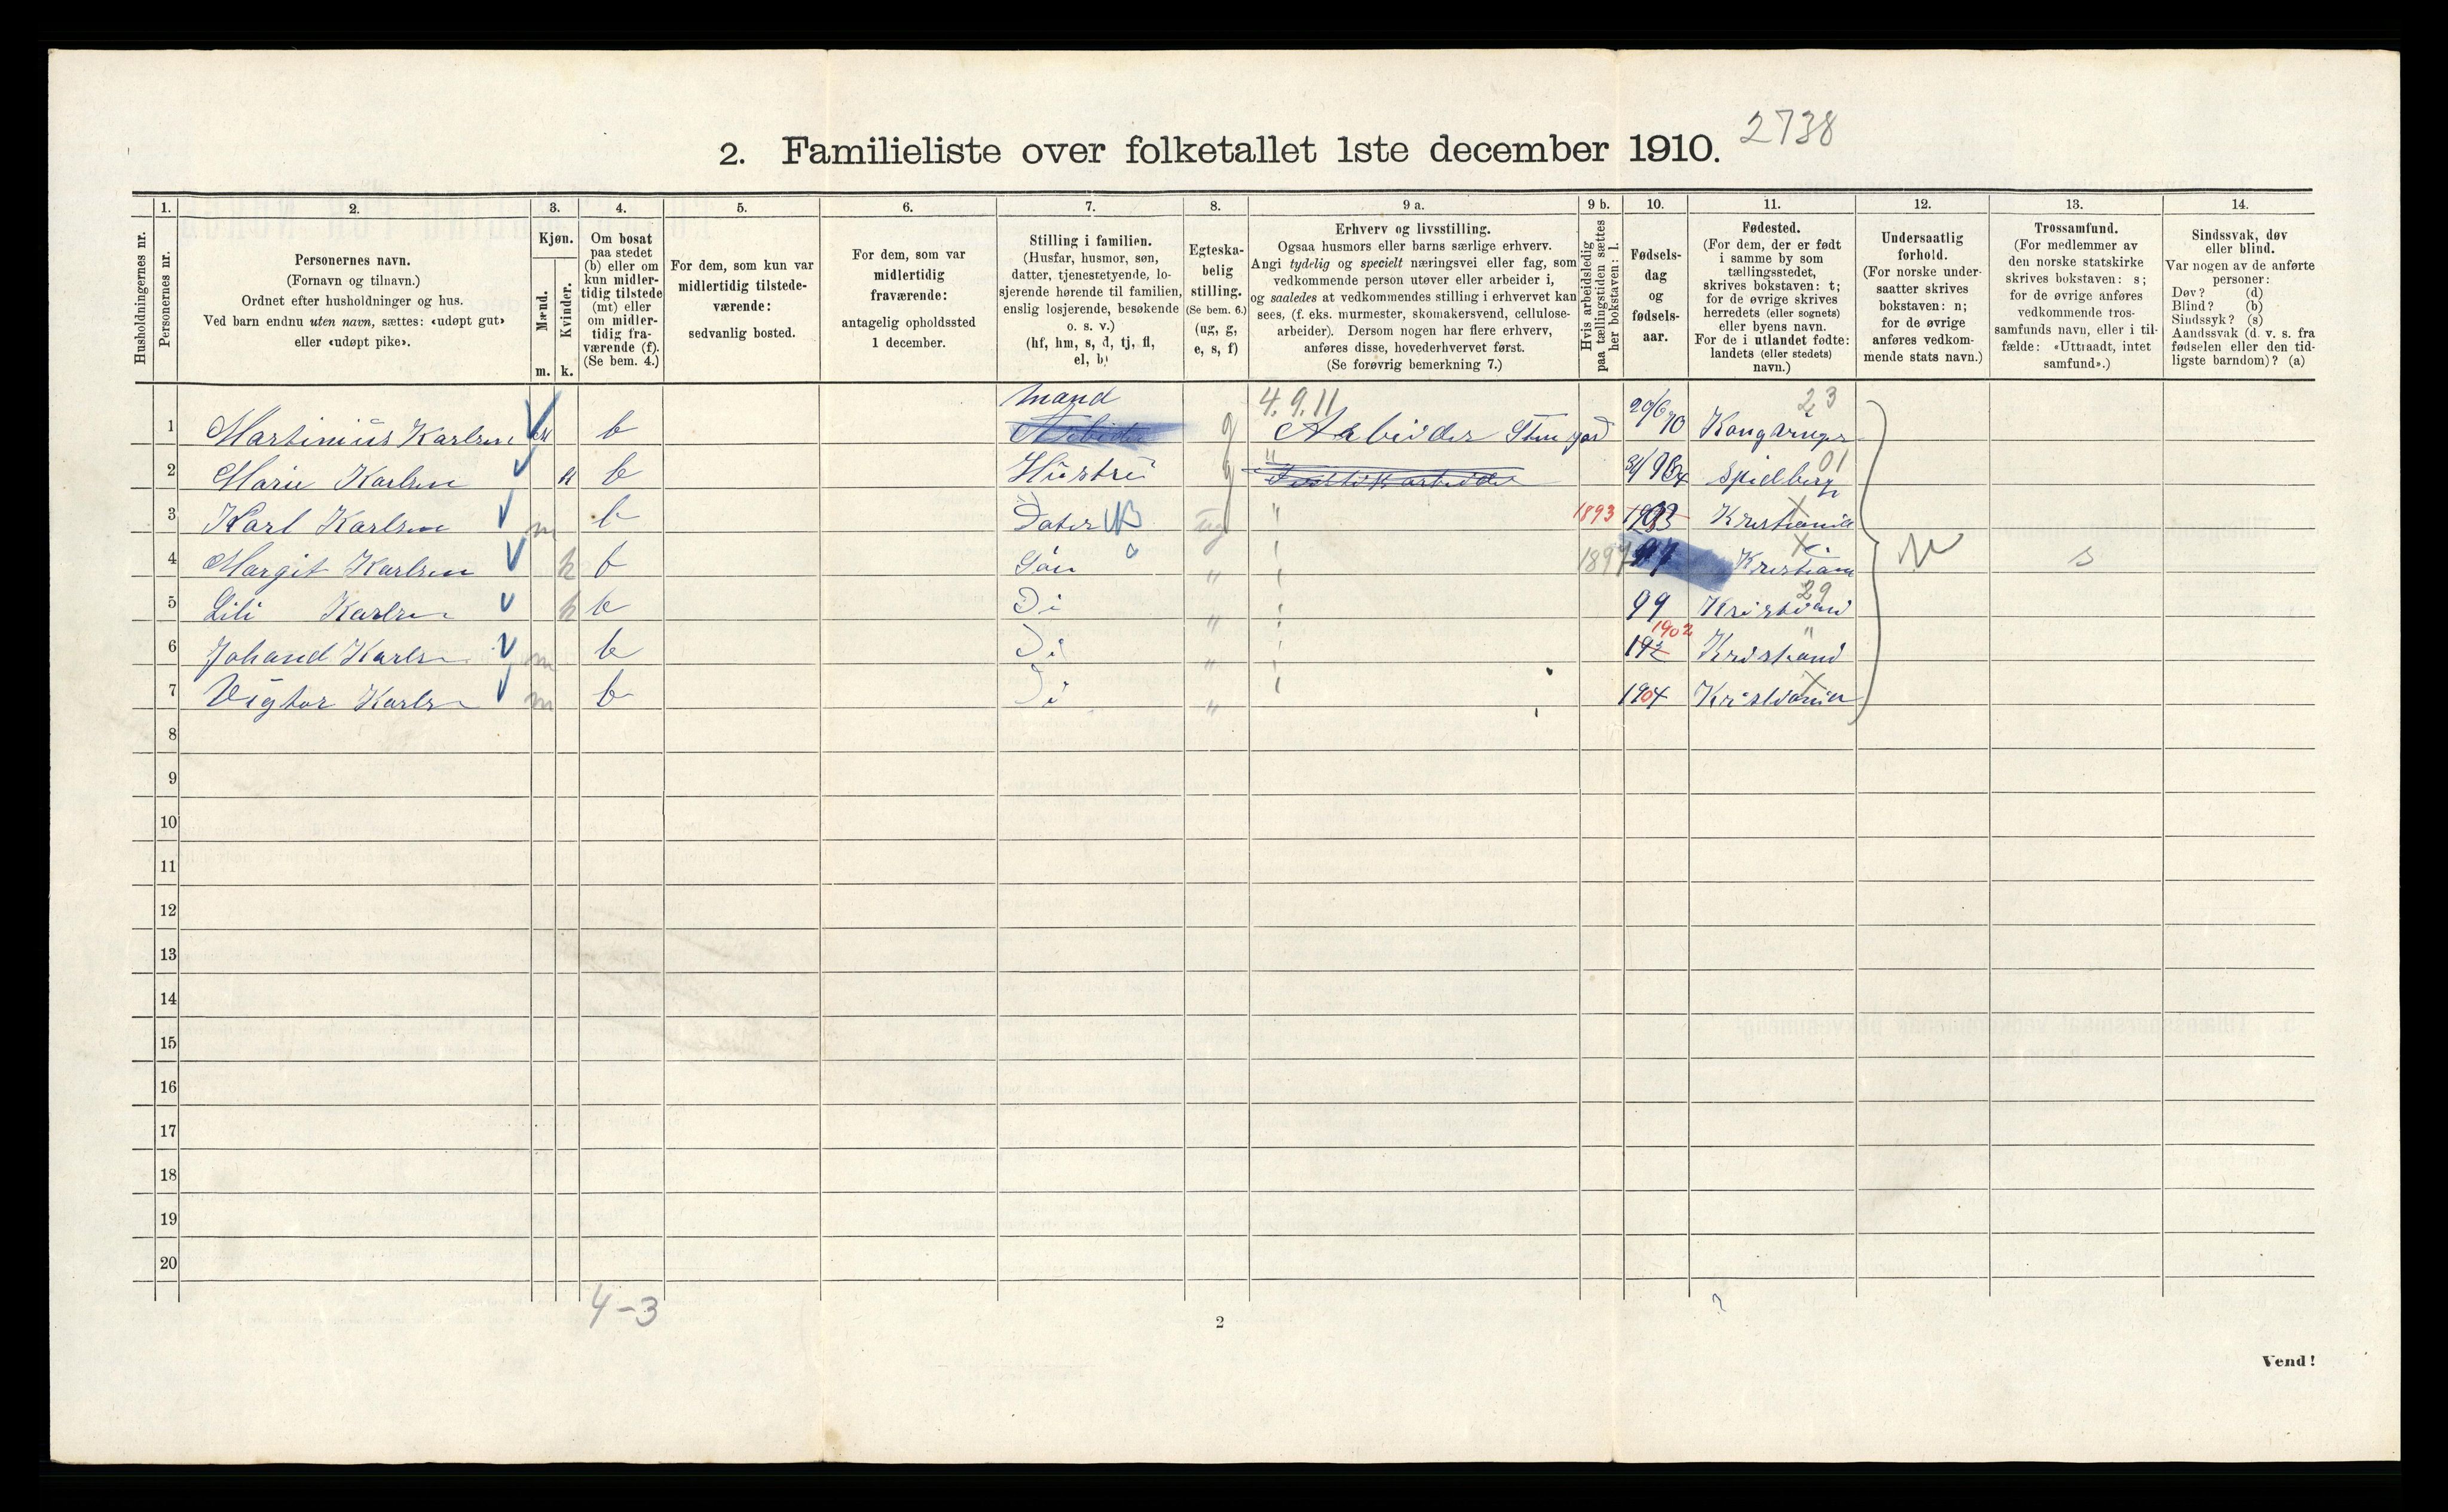 2. Familieliste over folketallet 1ste december 1910. 2738
Husholdningernes nr.
1.
Personernes nr.
2.
Personernes navn.
(Fornavn og tilnavn.)
Ordnet efter husholdninger og hus.
Ved barn endnu uten navn, sættes: «udøpt gut»
eller «udøpt pike».
3.
Kjøn.
Mænd.
Kvinder.
m. k.
4.
Om bosat
paa stedet
(b) eller om
kun midler-
tidig tilstede
(mt) eller
om midler-
tidig fra-
værende (f).
(Se bem. 4.)
5.
For dem, som kun var
midlertidig tilstede-
værende:
sedvanlig bosted.
6.
For dem, som var
midlertidig
fraværende:
antagelig opholdssted
1 december.
7.
Stilling i familien.
(Husfar, husmor, søn,
datter, tjenestetyende, lo-
sjerende hørende til familien,
enslig losjerende, besøkende
o. s. v.)
(hf, hm, s, d, tj, fl,
el, b)
8.
Egteska-
belig
stilling.
(Se bem. 6.)
(ug, g,
e, s, f)
9 a.
Erhverv og livsstilling.
Ogsaa husmors eller barns særlige erhverv.
Angi tydelig og specielt næringsvei eller fag, som
vedkommende person utøver eller arbeider i,
og saaledes at vedkommendes stilling i erhvervet kan
sees, (f. eks. murmester, skomakersvend, cellulose-
arbeider). Dersom nogen har flere erhverv,
anføres disse, hovederhvervet først.
(Se forøvrig bemerkning 7.)
9 b.
Hvis arbeidsledig
paa tællingstiden sættes
her bokstaven: l.
10.
Fødsels-
dag
og
fødsels-
aar.
11.
Fødested.
(For dem, der er født
i samme by som
tællingsstedet,
skrives bokstaven: t;
for de øvrige skrives
herredets (eller sognets)
eller byens navn.
For de i utlandet fødte:
landets (eller stedets)
navn.)
12.
Undersaatlig
forhold.
(For norske under-
saatter skrives
bokstaven: n;
for de øvrige
anføres vedkom-
mende stats navn.)
13.
Trossamfund.
(For medlemmer av
den norske statskirke
skrives bokstaven: s;
for de øvrige anføres
vedkommende tros-
samfunds navn, eller i til-
fælde: «Uttraadt, intet
samfund».)
14.
Sindssvak, døv
eller blind.
Var nogen av de anførte
personer:
Døv? (d)
Blind? (b)
Sindssyk? (s)
Aandssvak (d. v. s. fra
fødselen eller den tid-
ligste barndom)? (a)
mand 4.9.11 23
1 Martinius Karlsen m b Arbeider g Arbeider 29/6 70
2 Marie Karlsen k b Hustru g " Spidberg 01
3 Karl Karlsen m b Dater ug " 1893 Kristiania
4 Margit Karlsen k b Sön " 1897 97 Kristiania n s
5 Lili Karlsen k b Di " 99 29
6 Johand Karlsen m b Di " 1902 "
7 Vigtor Karlsen m b Di " 1904 Kristiania
8
9
10
11
12
13
14
15
16
17
18
19
20
4-3
2
Vend!